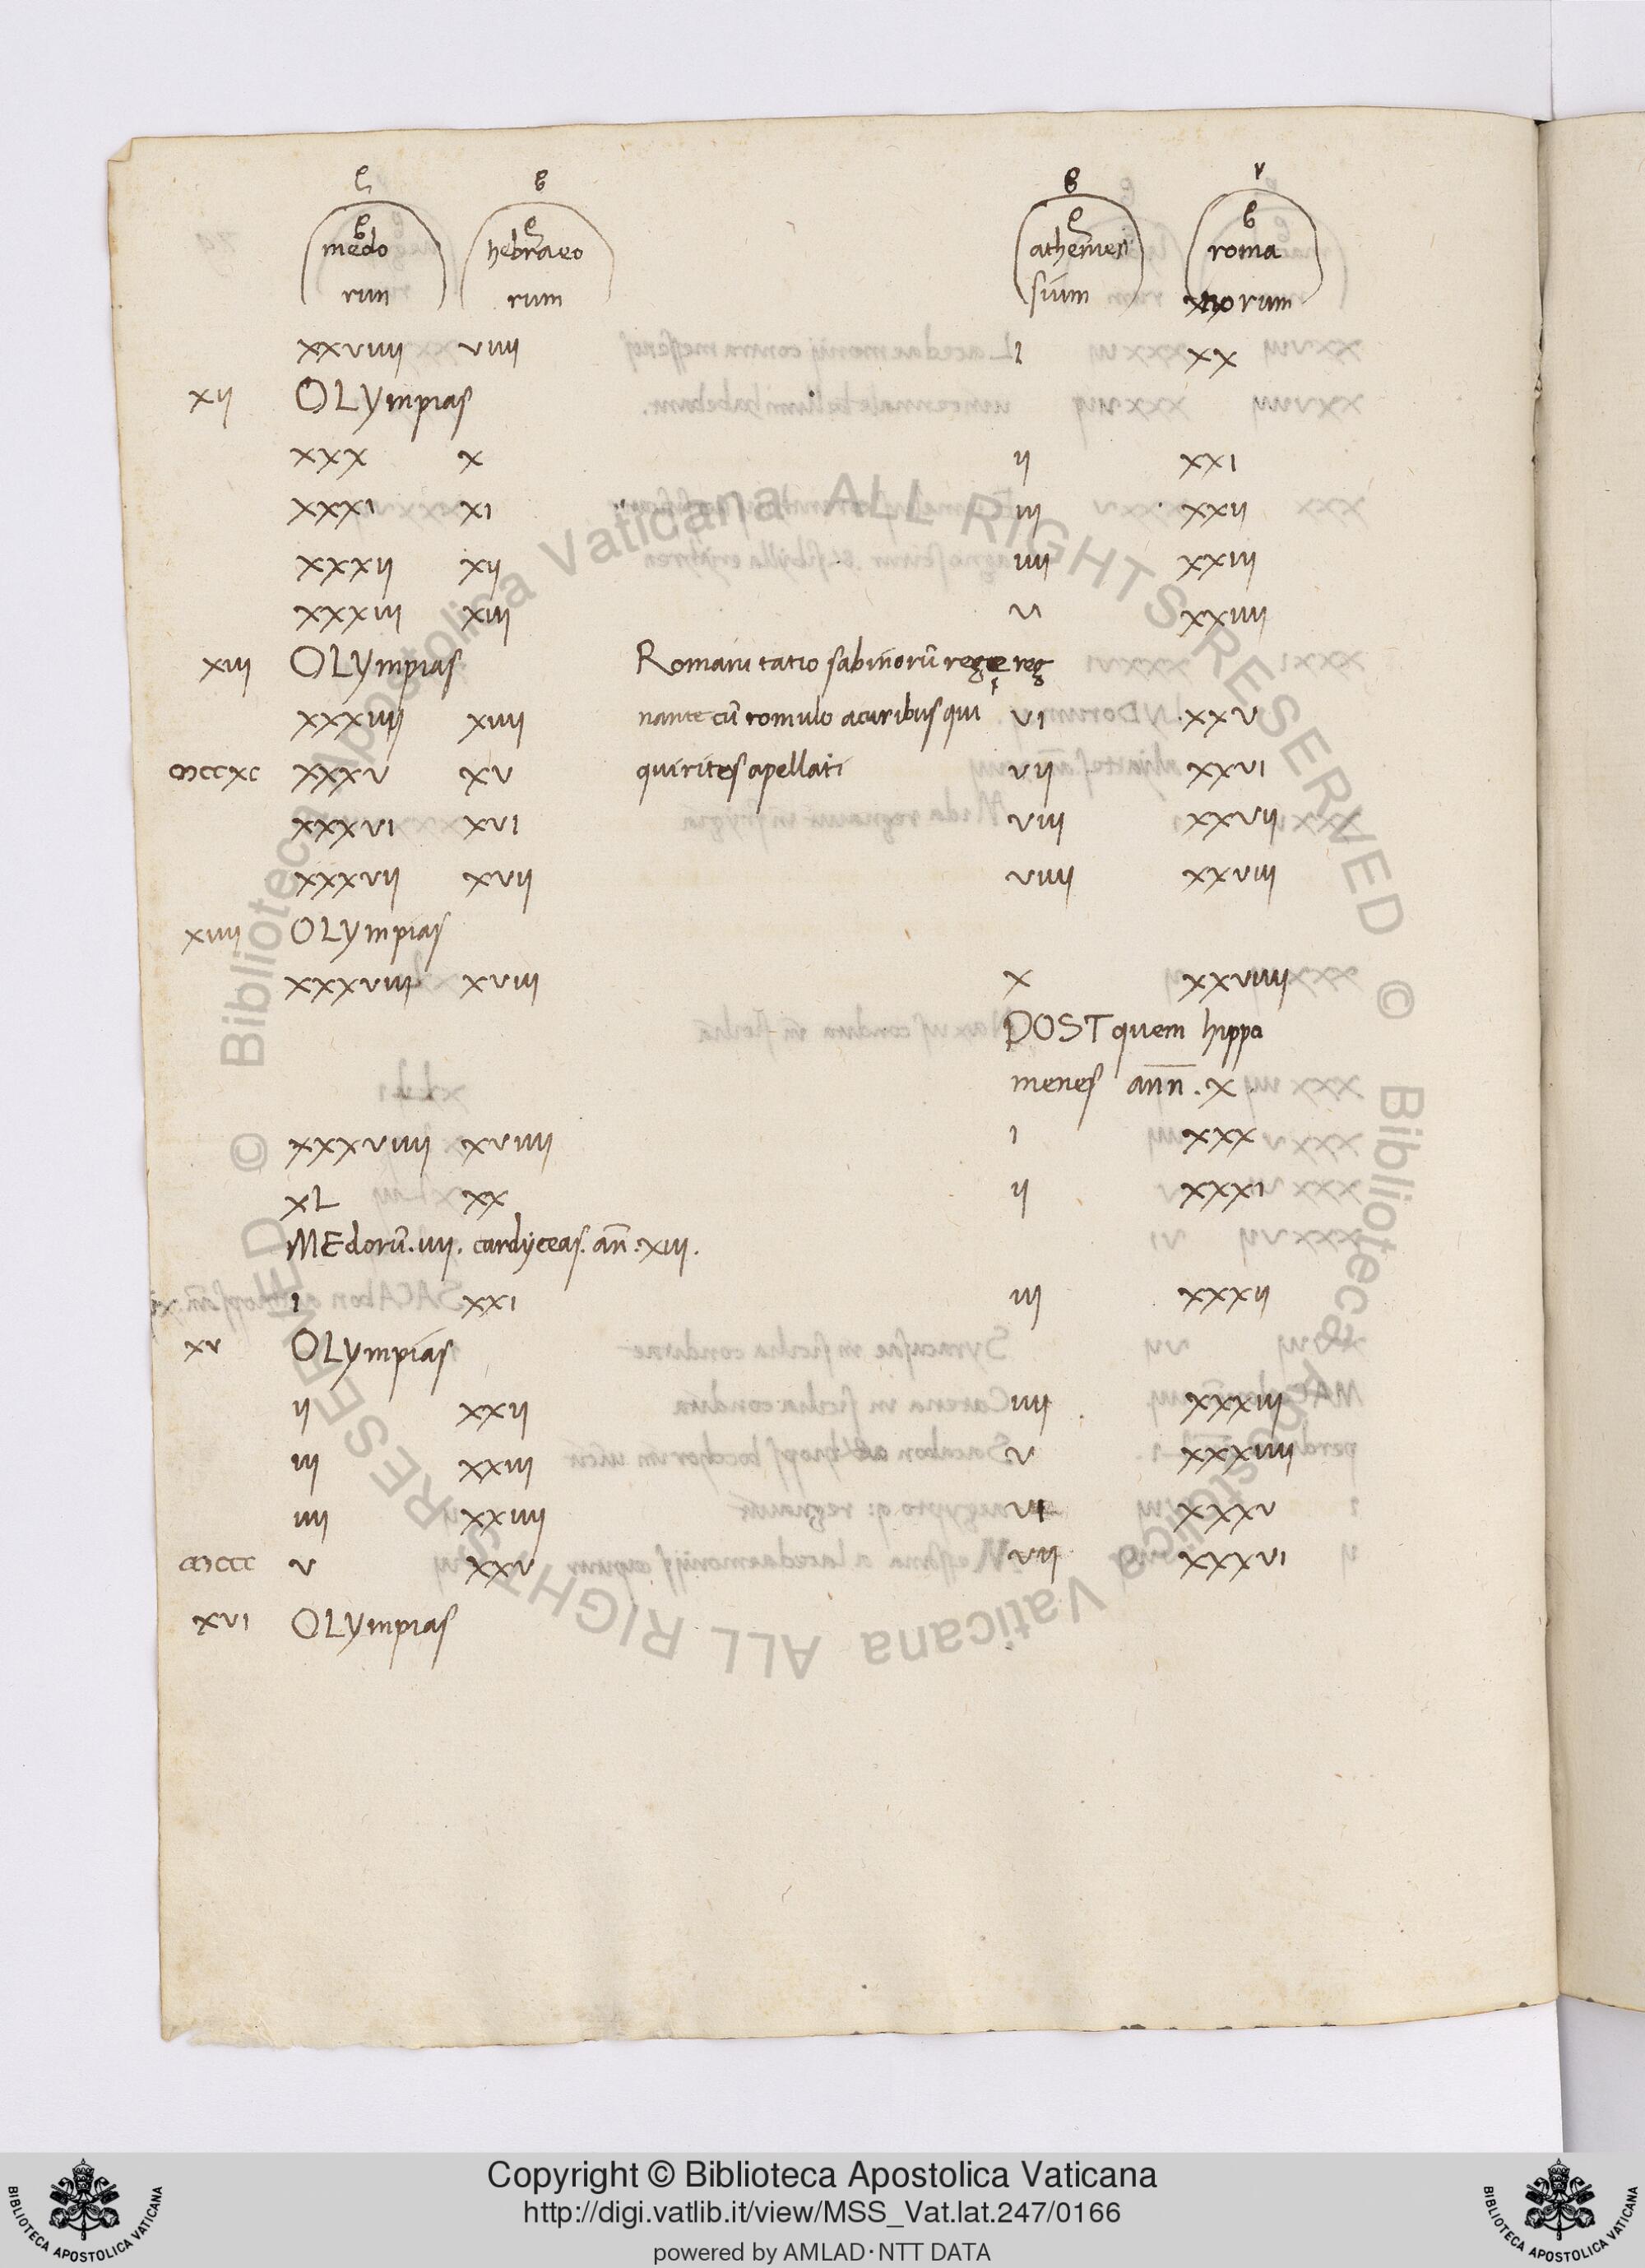 medo hebraeo atheniesi roma
rum rum sium norum
xxviiii viiii i xx
xii OLYmpias
xxx x ii xxi
xxxi xi iii xxii
xxxii xii iiii xxiii
xxxiii xiii v xxiiii
xiii OLYmpias Romani tatio sabinorū rege reg
xxxiiii xiiii nante cū romulo a curibus qui vi xxv
xxxv xv quirites apellati vii xxvi
xxxvi xvi viii xxvii
xxxvii xvii viiii xxviii
xiiii OLYmpias
xxxviii xviii x xxviiii
POST quem hippo
menes ann̄. x
xxxviiii xviiii i xxx
xL xx ii xxxi
MEdorū. iiii. cardyceas. añ. xiii.
i xxi iii xxxii
xv OLYmpias
ii xxii iiii xxxiii
iii xxiii v xxxiiii
iiii xxiiii vi xxxv
v xxv vii xxxvi
xvi OLYmpias
© Biblioteca Apostolica Vaticana ALL RIGHTS RESERVED
© Biblioteca Apostolica Vaticana ALL RIGHTS RESERVED
BIBLIOTECA APOSTOLICA VATICANA
Copyright © Biblioteca Apostolica Vaticana
http://digi.vatlib.it/view/MSS_Vat.lat.247/0166
powered by AMLAD·NTT DATA
BIBLIOTECA APOSTOLICA VATICANA